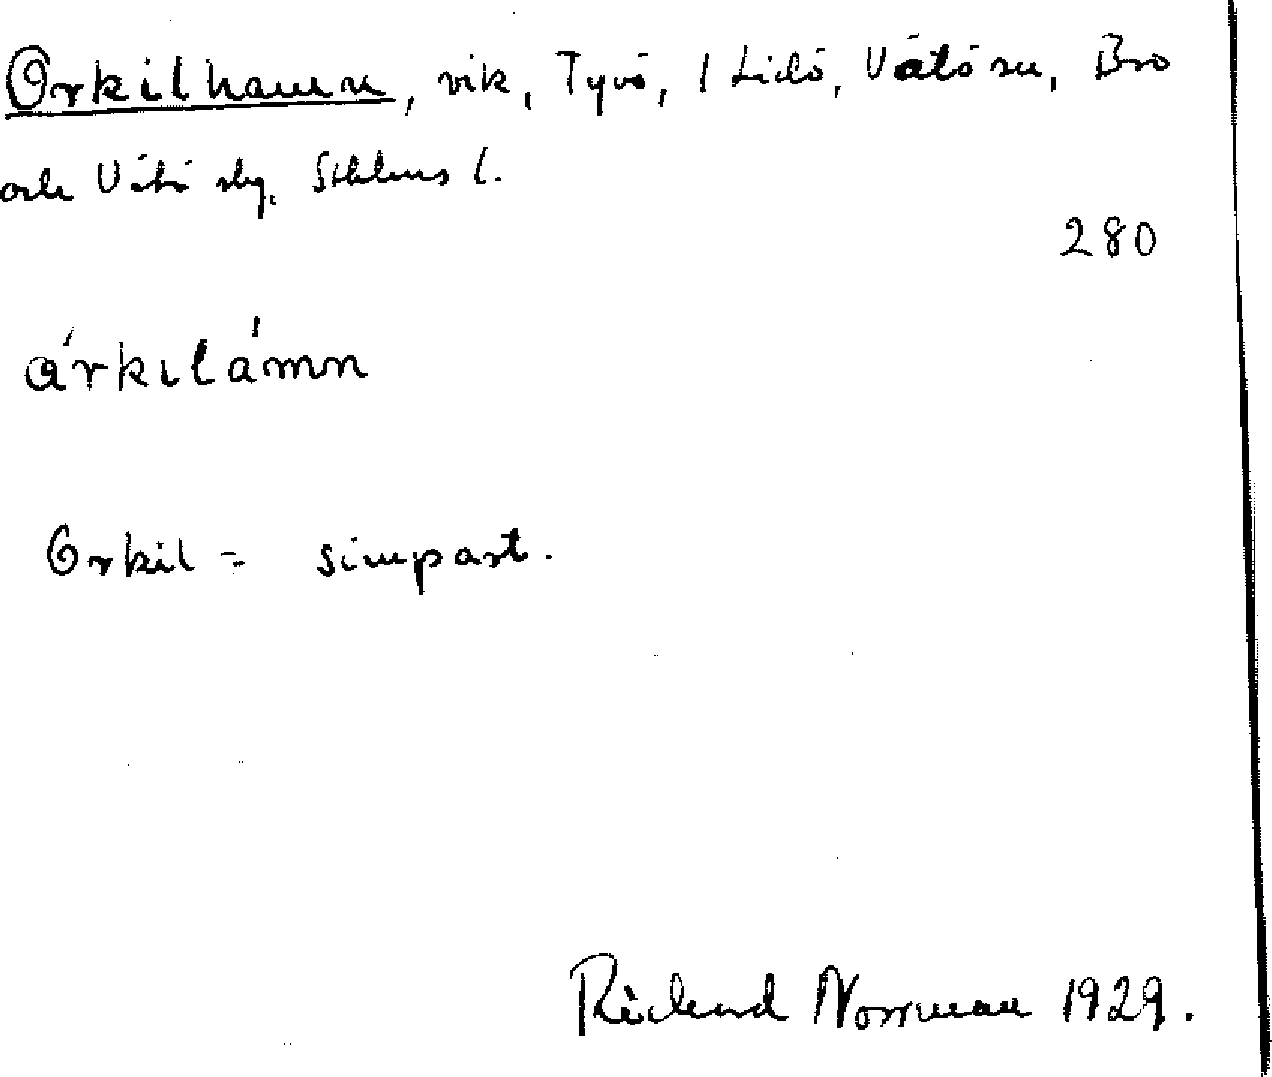 Orkilhamn, vik, Tyvö, 1 Lidö, Vätö sn, Bro
och Vätö slg, Sthlms l.
280
árkilámn
Orkil = simpart.
Rickard Norrman 1929.